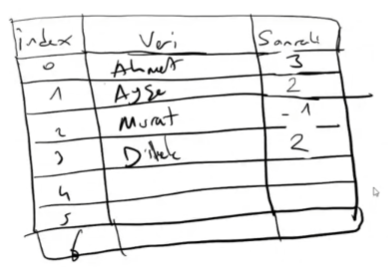 index Veri Sonraki
0 Ahmet 3
1 Ayşe 2
2 Murat -1
3 Dilek 2
4
5